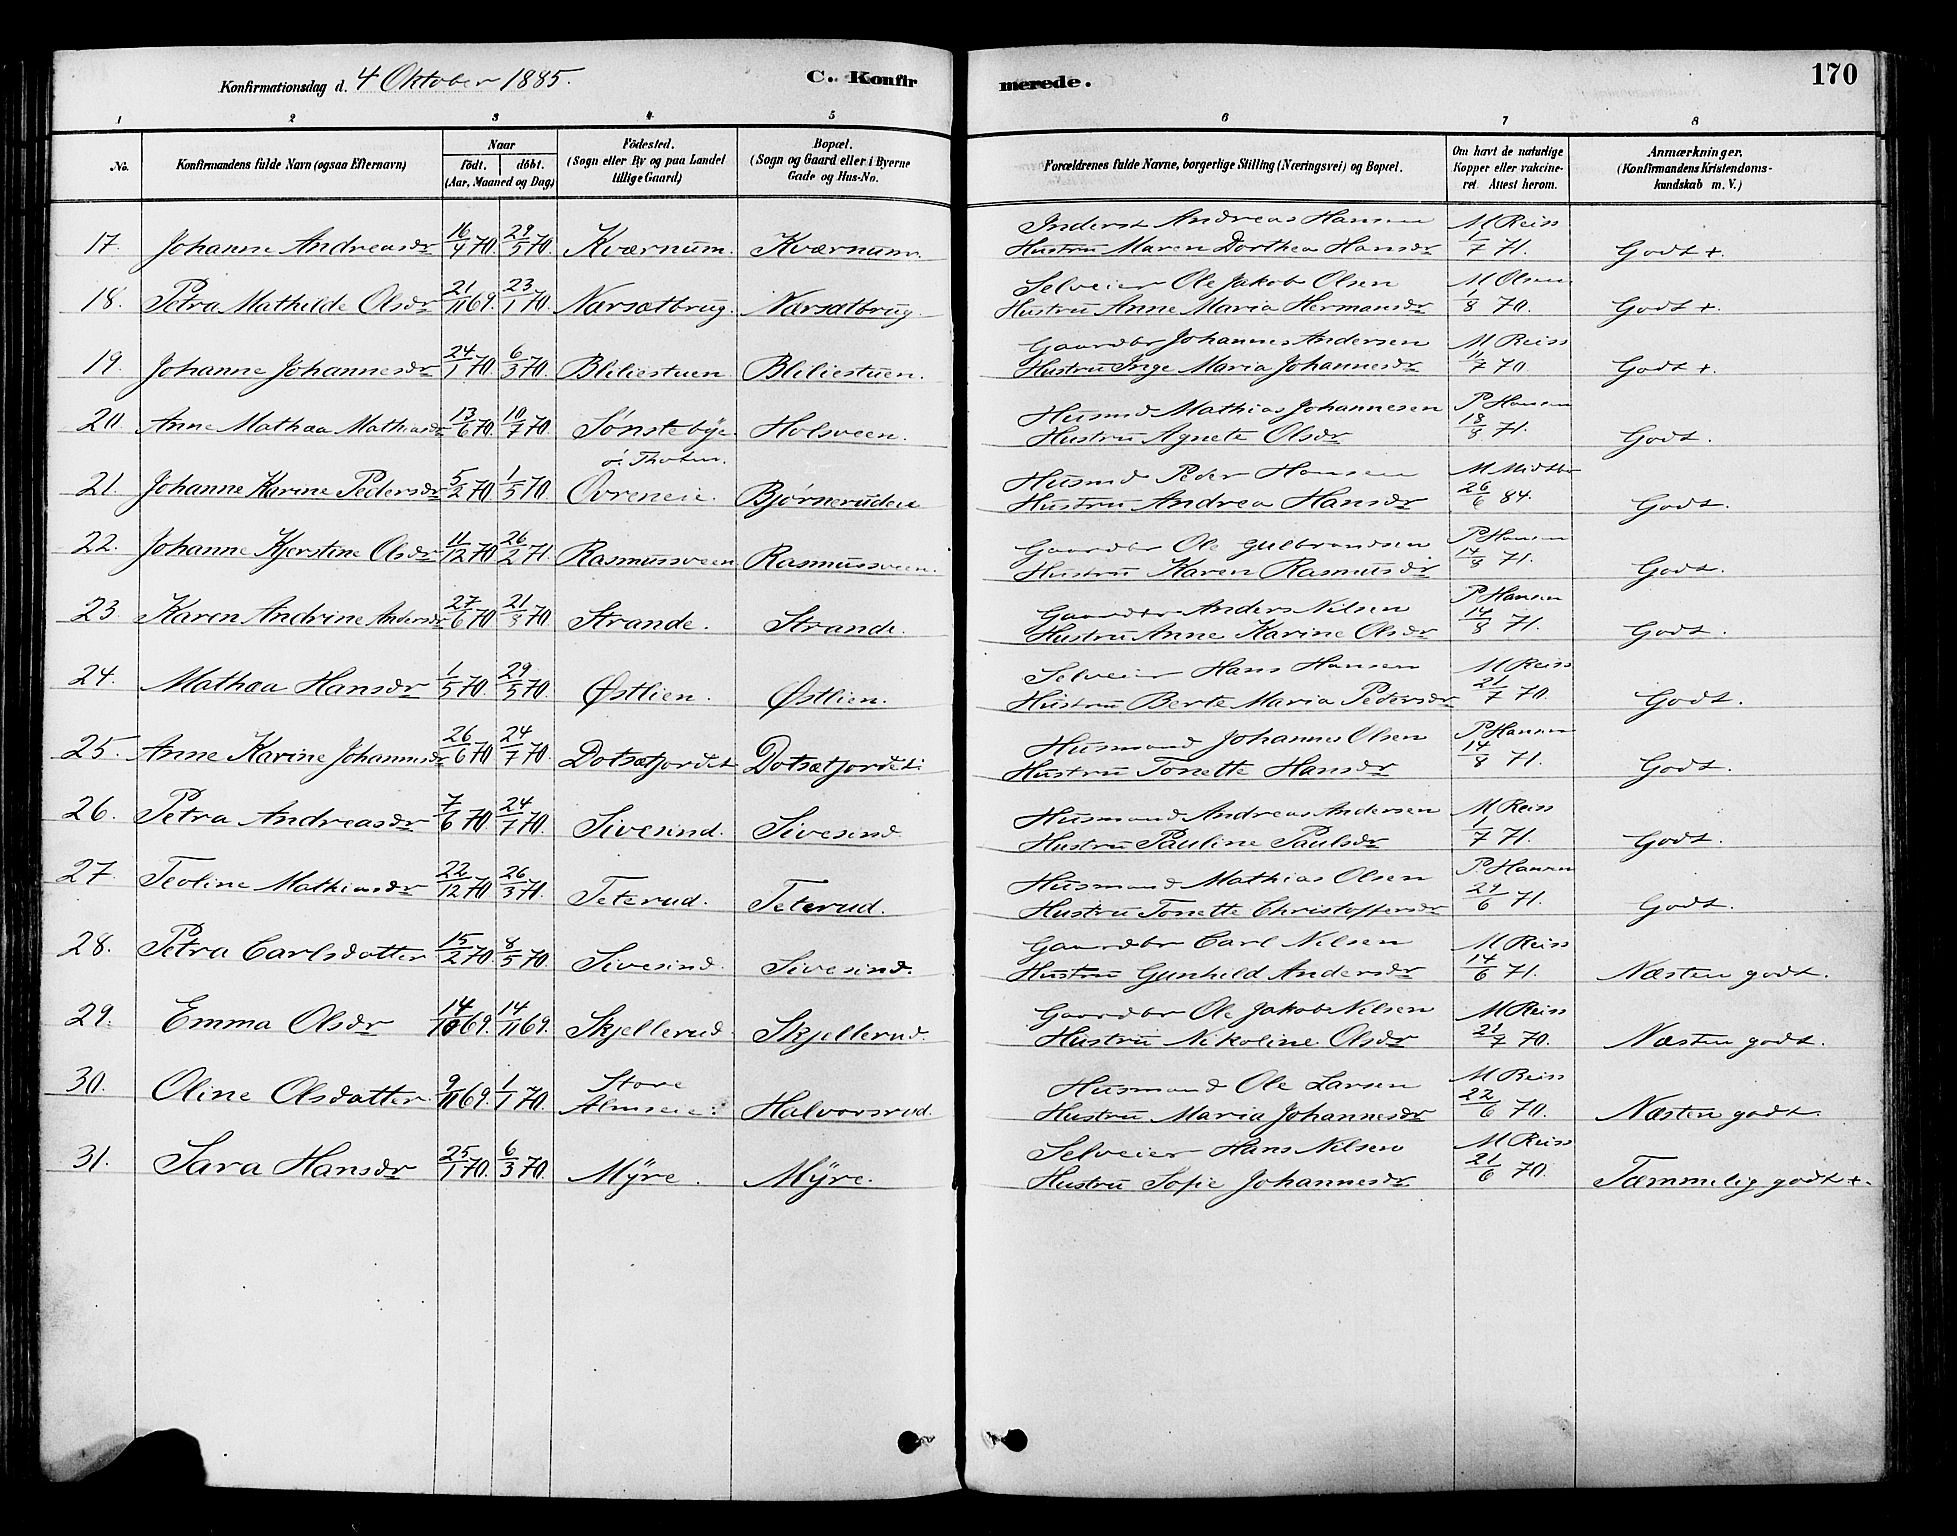 170
Konfirmationsdag d. 4 Oktober 1885.
C. Konfirmerede.
1 2 3 4 5 6 7 8
No.
Konfirmandens fulde Navn (ogsaa Efternavn)
Naar
födt. döbt.
(Aar, Maaned og Dag)
Födested.
(Sogn eller By og paa Landet
tillige Gaard)
Bopæl.
(Sogn og Gaard eller i Byerne
Gade og Hus-No.
Forældrenes fulde Navne, borgerlige Stilling (Næringsvei) og Bopæl.
Om havt de naturlige
Kopper eller vakcine-
ret. Attest herom.
Anmærkninger.
(Konfirmandens Kristendoms-
kundskab m. V.)
17. Johanne Andreasdr 16/4 70. 29/5 70. Kværnum. Kværnum. Inderst Andreas Hansen M Reiss
Hustru Maren Dorthea Hansdr 1/7 71. Godt +.
18. Petra Mathilde Olsdr 21/11 69. 23/1 70. Narsætbrug. Nærsætbrug. Selveier Ole Jakob Olsen M Olsen
Hustru Anne Maria Hermansdr 1/8 70. Godt +.
19. Johanne Johannesdr 24/1 70. 6/3 70. Bliliestuen. Bliliestuen. Gaardbr Johannes Andersen M Reiss
Hustru Inge Maria Johannesdr 11/7 70. Godt +.
20 Anne Mathea Mathiasdr 13/6 70. 10/7 70. Sönstebye ö. Thoten. Holsveen. Husmd Mathias Johannesen P Hansen
Hustru Agnete Olsdr 18/8 71. Godt.
21. Johanne Karine Pedersdr 5/2 70. 1/5 70. Övreneie. Bjørneruden Husmd Peder Hansen
Hustru Andrea Hansdr 26/6 84. Godt.
22. Johanne Kjerstine Olsdr 11/12 70 26/2 71. Rasmusveen Rasmusveen. Gaardbr Ole Gulbrandsen P Hansen
Hustru Karen Rasmusdr 14/8 71. Godt.
23. Karen Andrine Andersdr 27/6 70 21/8 70. Strande. Strande. Gaardbr Anders Nilsen P Hansen
Hustru Anne Karine Olsdr 14/8 71. Godt.
24. Mathea Hansdr 1/5 70. 29/5 70. Østlien. Østlien. Selveier Hans Hansen M Reiss
Hustru Berte Maria Pedersdr 21/7 70. Godt.
25. Anne Karine Johannesdr 26/6 70 24/7 70. Dotsætjordet Dotsætjordet. Husmand Johannes Olsen P Hansen
Hustru Tonette Hansdr 14/8 71. Godt.
26. Petra Andreasdr 7/6 70. 24/7 70. Sivesind. Sivesind. Husmand Andreas Andersen M Reiss
Hustru Pauline Paulsdr 1/7 71. Godt.
27. Teoline Mathiasdr 22/12 70 26/3 71. Teterud. Teterud. Husmand Mathias Olsen P Hansen
Hustru Tonette Christoffersdr 29/6 71. Godt.
28. Petra Carlsdatter 15/2 70. 8/5 70. Sivesind. Sivesind. Gaardbr Carl Nilsen M Reiss
Hustru Gunhild Andersdr 14/6 71. Næsten godt.
29. Emma Olsdr 14/10 69. 14/11 69. Skjellerud. Skjellerud. Gaardbr Ole Jakob Nilsen M Reiss
Hustru Nikoline Olsdr 21/7 70. Næsten godt.
30. Oline Olsdatter 9/11 69. 1/1 70. Store Almseie. Halvorsrud. Husmand Ole Larsen M Reiss
Hustru Maria Johannesdr 22/6 70. Næsten godt.
31. Sara Hansdr 25/1 70. 6/3 70. Mÿre. Mÿre. Selveier Hans Nilsen M Reiss
Hustru Sofie Johannesdr 21/6 70. Tæmmelig godt +.